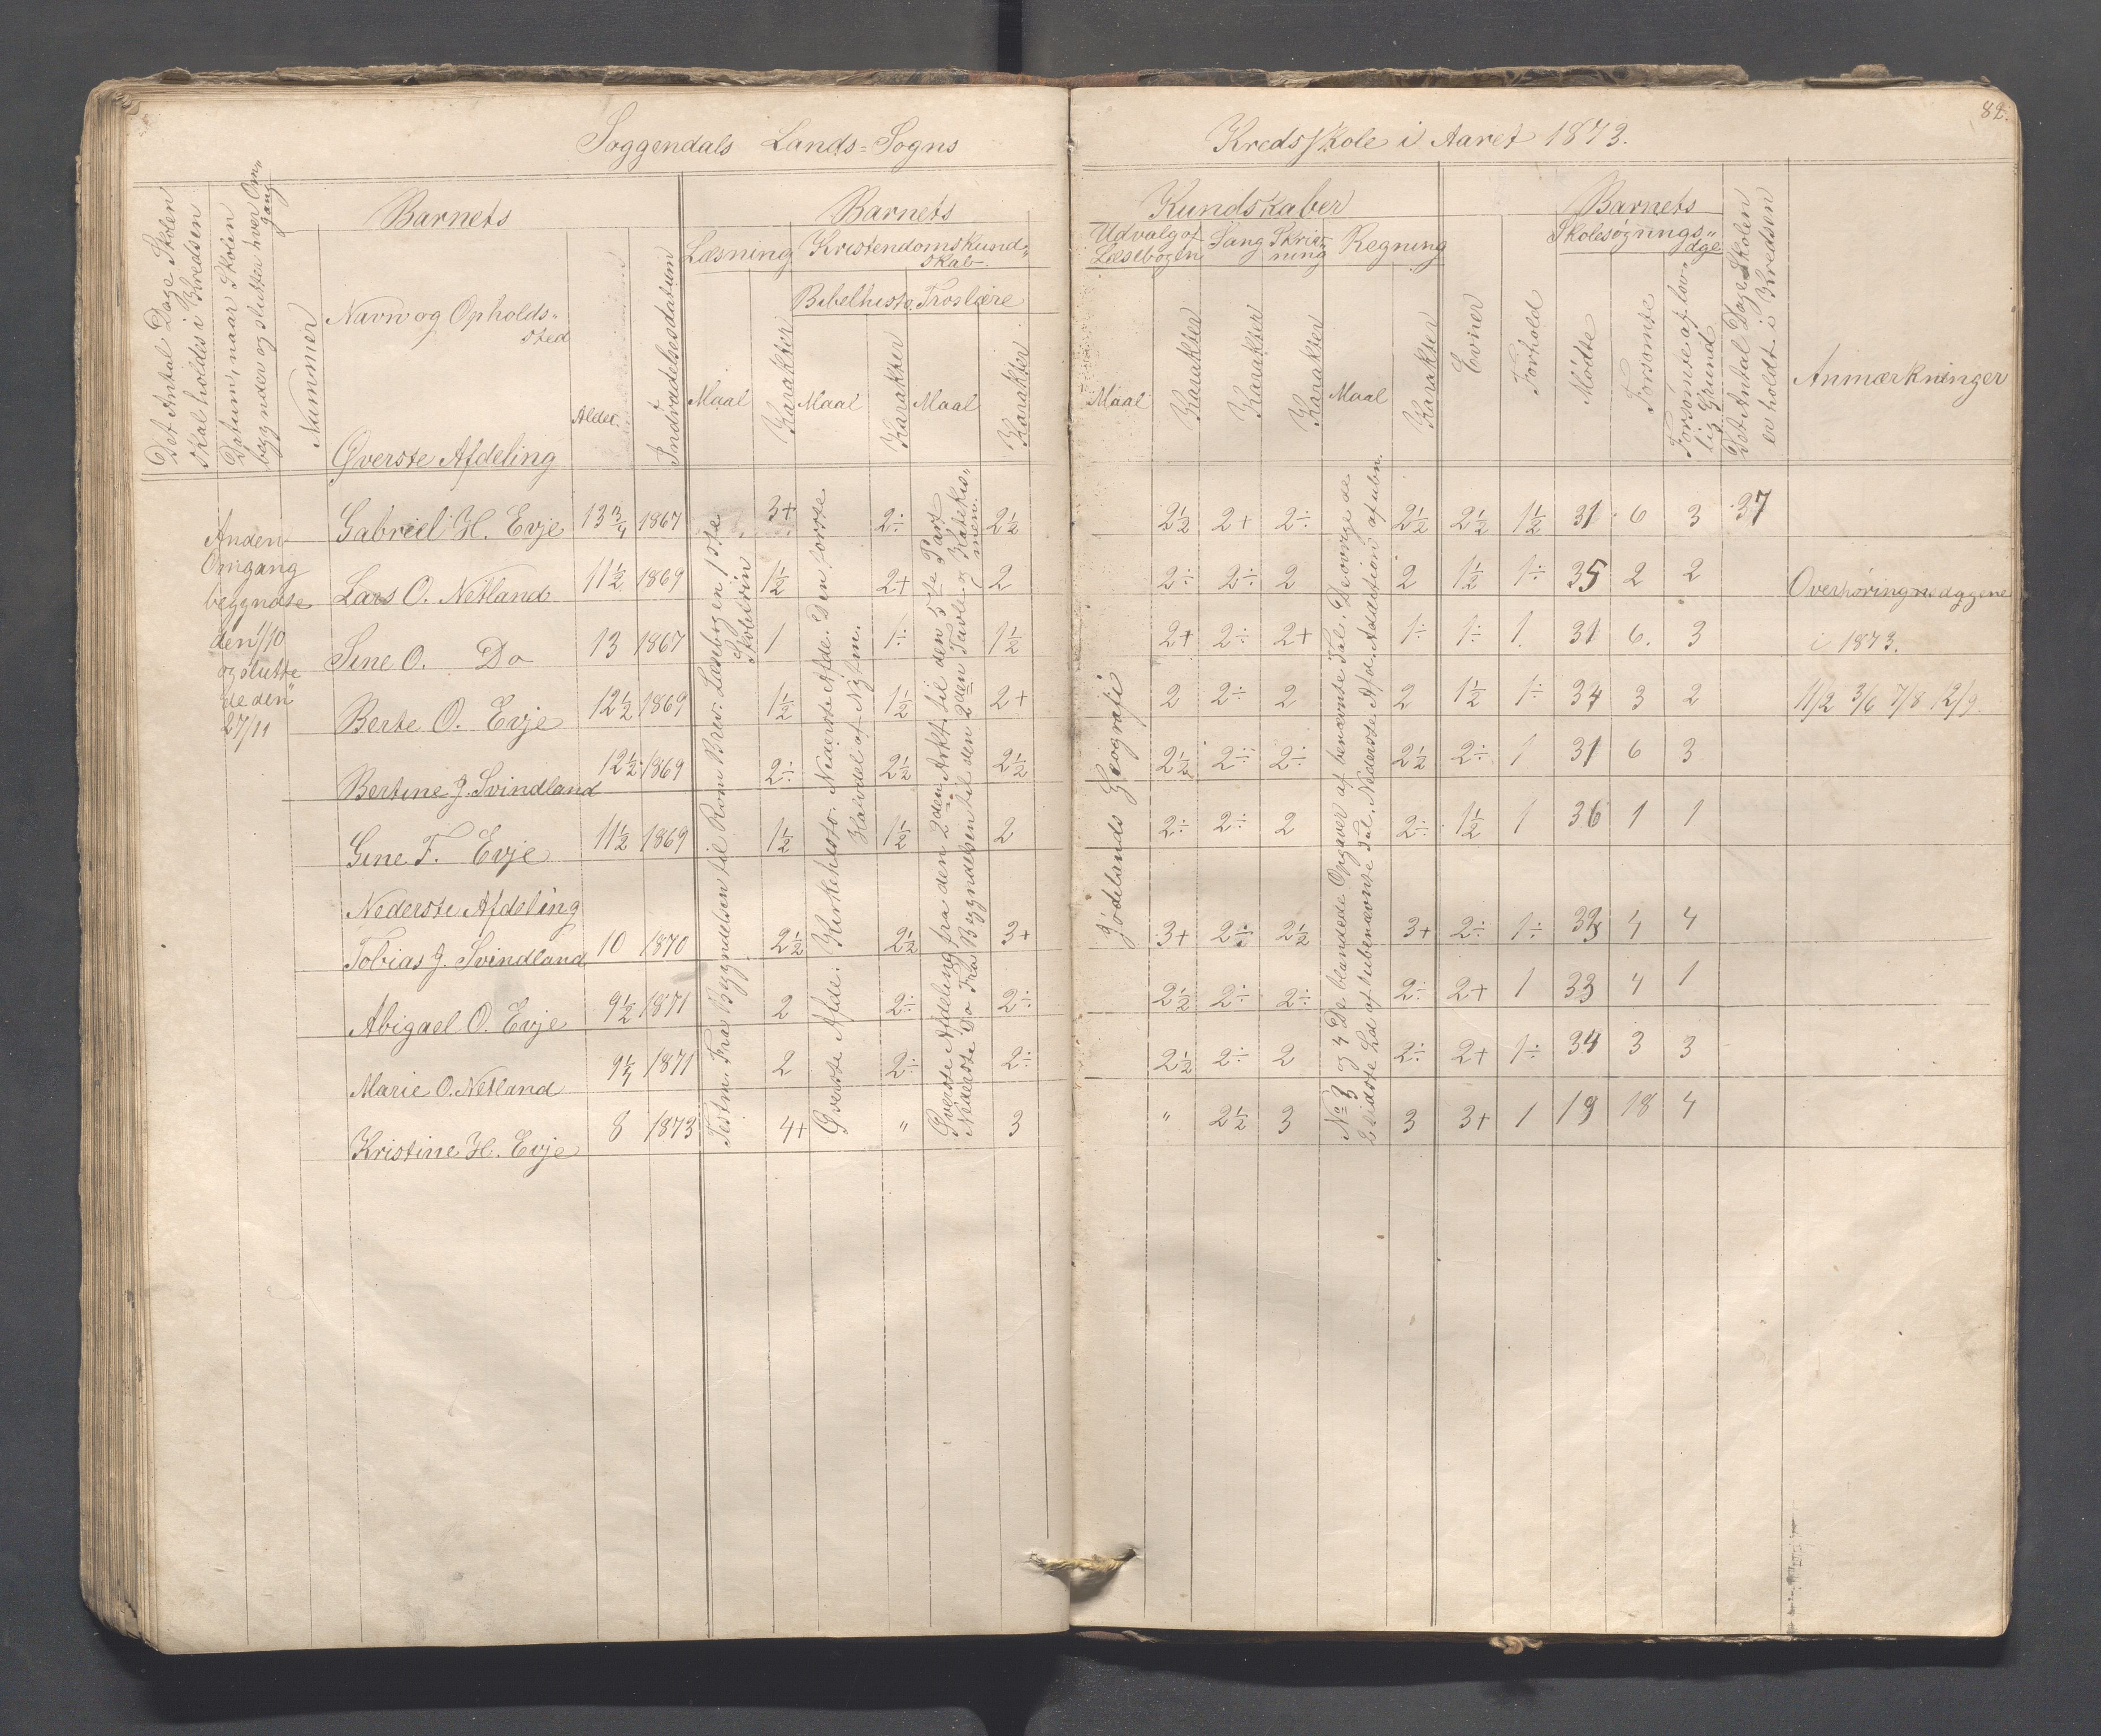 82.
Soggendals Lands=Sogns Kredsskole i Aaret 1873.
Det Antal Dage Skolen
skal holdes i Kredsen
Datum, naar Skolen
begynder og slutter hver Om„
gang
Nummer
Barnets
Navn og Opholds„
sted
Øverste Afdeling
Alder.
Indtrædelsesdatum
Barnets
Læsning
Maal
Karakter
Kristendomskund„
skab.
Bibelhisto. Troslære
Maal
Karakter
Maal
Karakter
Kundskaber
Udvalg af
Læsebogen
Maal
Karakter
Sang
Karakter
Skriv„
ning
Karakter
Regning
Maal
Karakter
Evner
Forhold
Barnets
Skolesøgnings„
dge
Mødte
Forsømte
Forsømte af lov„
lig Grund
Det Antal Dage Skolen
er holdt i Kredsen
Anmærkninger
Anden
Omgang
begyndte
den 1/10
og slutte
de den
27/11
Gabriel H. Evje 13 3/4 1867 3+ 2÷ 2½ 2½ 2+ 2÷ 2½ 2½ 1½ 31 6 3 37
Lars O. Netland 11½ 1869 1½ 2+ 2 2÷ 2÷ 2 2 1½ 1÷ 35 2 2 Overhøringnsdagene
Sine O. Do 13 1867 1 1÷ 1½ 2+ 2÷ 2+ 1÷ 1÷ 1 31 6. 3 i 1873.
Berte O. Evje 12½ 1869 1½ 1½ 2+ 2 2÷ 2 2 1½ 1÷ 34 3 2 11/2 3/6 7/8 12/9.
Bertine J. Svindland 12½ 1869 2÷ 2½ 2½ 2½ 2÷ 2÷ 2½ 2÷ 1 31 6 3
Gine T. Evje 11½ 1869 1½ 1½ 2 2÷ 2÷ 2 2÷ 1½ 1 36 1 1
Nederste Afdeling
Tobias J. Svindland 10 1870 2½ 2½ 3+ 3+ 2÷ 2½ 3+ 2÷ 1÷ 33 4 4
Abigael O. Evje 9½ 1871 2 2÷ 2÷ 2½ 2÷ 2÷ 2÷ 2+ 1 33 4 1
Marie O. Netland 9¼ 1871 2 2÷ 2÷ 2½ 2÷ 2 2÷ 2+ 1÷ 34 3 3
Kristine H. Evje 8 1873 4+ „ 3 „ 2½ 3 3 3+ 1 19 18 4
Testm. Fra Begyndelsen til Rom Brev. Læsebogen 1ste
Skoletrin
Øverste Afde. Kirkehisto. Nederste Afde. Den første
Halvdel af Nytm.
Øverste Afdeling fra den 2den Arkt. til den 5te Part
Nederste Do Fra Begyndelsen til den 2den Tavle og Katekis„
men.
Jødelands Geografi
No 3 og 4 De blandede Opgaver af benævnte Tal. De øvrige de
2 sidste Ld af Aubenævnte Tal. Nederste Afd. Addition af ubn.